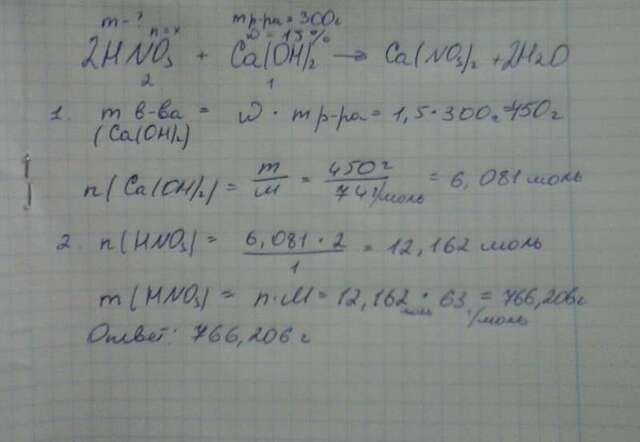 m-? mр-ра = 300г
n=x ω = 15%
2HNO3 + Ca(OH)2 → Ca(NO3)2 + 2H2O
2 1
1. m в-ва = ω · mр-ра = 1,5 · 300г = 450г
(Ca(OH)2)
n(Ca(OH)2) = m/M = 450г/74г/моль = 6,081 моль
2. n(HNO3) = 6,081 · 2/1 = 12,162 моль
m(HNO3) = n · M = 12,162 моль · 63 г/моль = 766,206г
Ответ: 766,206 г